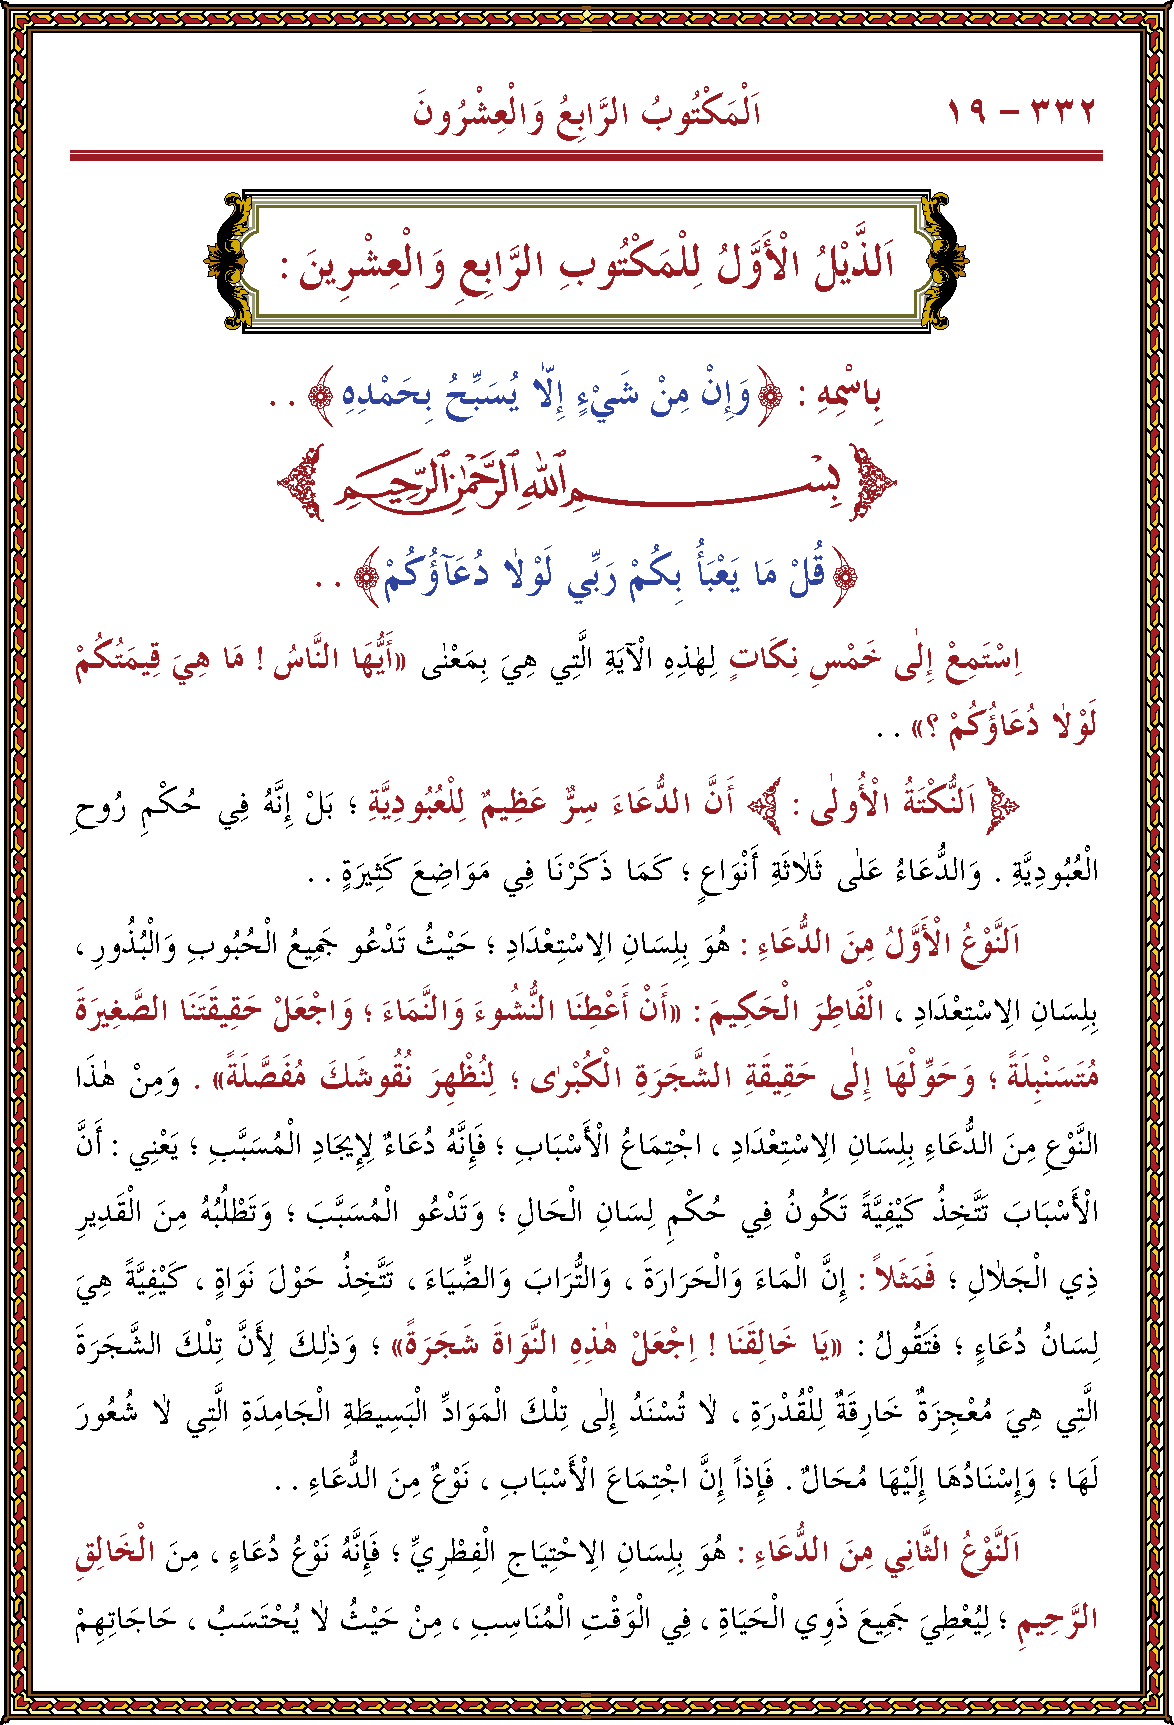 ٣٣٢ – ١٩
اَلْمَكْتُوبُ الرَّابِعُ وَالْعِشْرُونَ
اَلذَّيْلُ الْأَوَّلُ لِلْمَكْتُوبِ الرَّابِعِ وَالْعِشْرِينَ :
بِاسْمِهِ : ﴿وَإِنْ مِنْ شَيْءٍ إِلَّا يُسَبِّحُ بِحَمْدِهِ﴾ . .
بِسْمِ اللّٰهِ الرَّحْمٰنِ الرَّحِيمِ
﴿قُلْ مَا يَعْبَأُ بِكُمْ رَبِّي لَوْلَا دُعَآؤُكُمْ﴾ . .
اِسْتَمِعْ إِلٰى خَمْسِ نِكَاتٍ لِهٰذِهِ الْآيَةِ الَّتِي هِيَ بِمَعْنٰى «أَيُّهَا النَّاسُ ! مَا هِيَ قِيمَتُكُمْ
لَوْلَا دُعَاؤُكُمْ ؟» . .
اَلنُّكْتَةُ الْأُولٰى : أَنَّ الدُّعَاءَ سِرٌّ عَظِيمٌ لِلْعُبُودِيَّةِ ؛ بَلْ إِنَّهُ فِي حُكْمِ رُوحِ
الْعُبُودِيَّةِ . وَالدُّعَاءُ عَلٰى ثَلَاثَةِ أَنْوَاعٍ ؛ كَمَا ذَكَرْنَا فِي مَوَاضِعَ كَثِيرَةٍ . .
اَلنَّوْعُ الْأَوَّلُ مِنَ الدُّعَاءِ : هُوَ بِلِسَانِ الِاسْتِعْدَادِ ؛ حَيْثُ تَدْعُو جَمِيعُ الْحُبُوبِ وَالْبُذُورِ ،
بِلِسَانِ الِاسْتِعْدَادِ ، الْفَاطِرَ الْحَكِيمَ : «أَنْ أَعْطِنَا النُّشُوءَ وَالنَّمَاءَ ؛ وَاجْعَلْ حَقِيقَتَنَا الصَّغِيرَةَ
مُتَسَنْبِلَةً ؛ وَحَوِّلْهَا إِلٰى حَقِيقَةِ الشَّجَرَةِ الْكُبْرٰى ؛ لِنُظْهِرَ نُقُوشَكَ مُفَصَّلَةً» . وَمِنْ هٰذَا
النَّوْعِ مِنَ الدُّعَاءِ بِلِسَانِ الِاسْتِعْدَادِ ، اجْتِمَاعُ الْأَسْبَابِ ؛ فَإِنَّهُ دُعَاءٌ لِإِيجَادِ الْمُسَبَّبِ ؛ يَعْنِي : أَنَّ
الْأَسْبَابَ تَتَّخِذُ كَيْفِيَّةً تَكُونُ فِي حُكْمِ لِسَانِ الْحَالِ ؛ وَتَدْعُو الْمُسَبَّبَ ؛ وَتَطْلُبُهُ مِنَ الْقَدِيرِ
ذِي الْجَلَالِ ؛ فَمَثَلًا : إِنَّ الْمَاءَ وَالْحَرَارَةَ ، وَالتُّرَابَ وَالضِّيَاءَ ، تَتَّخِذُ حَوْلَ نَوَاةٍ ، كَيْفِيَّةً هِيَ
لِسَانُ دُعَاءٍ ؛ فَتَقُولُ : «يَا خَالِقَنَا ! اِجْعَلْ هٰذِهِ النَّوَاةَ شَجَرَةً» ؛ وَذٰلِكَ لِأَنَّ تِلْكَ الشَّجَرَةَ
الَّتِي هِيَ مُعْجِزَةٌ خَارِقَةٌ لِلْقُدْرَةِ ، لَا تُسْنَدُ إِلٰى تِلْكَ الْمَوَادِّ الْبَسِيطَةِ الْجَامِدَةِ الَّتِي لَا شُعُورَ
لَهَا ؛ وَإِسْنَادُهَا إِلَيْهَا مُحَالٌ . فَإِذاً إِنَّ اجْتِمَاعَ الْأَسْبَابِ ، نَوْعٌ مِنَ الدُّعَاءِ . .
اَلنَّوْعُ الثَّانِي مِنَ الدُّعَاءِ : هُوَ بِلِسَانِ الِاحْتِيَاجِ الْفِطْرِيِّ ؛ فَإِنَّهُ نَوْعُ دُعَاءٍ ، مِنَ الْخَالِقِ
الرَّحِيمِ ؛ لِيُعْطِيَ جَمِيعَ ذَوِي الْحَيَاةِ ، فِي الْوَقْتِ الْمُنَاسِبِ ، مِنْ حَيْثُ لَا يُحْتَسَبُ ، حَاجَاتِهِمْ